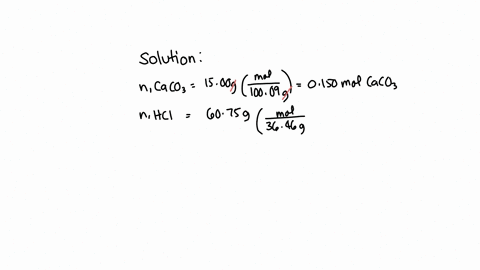 Solution:
n, CaCO₃ = 15.00g (mol/100.09g) = 0.150 mol CaCO₃
n, HCl = 60.75g (mol/36.46g